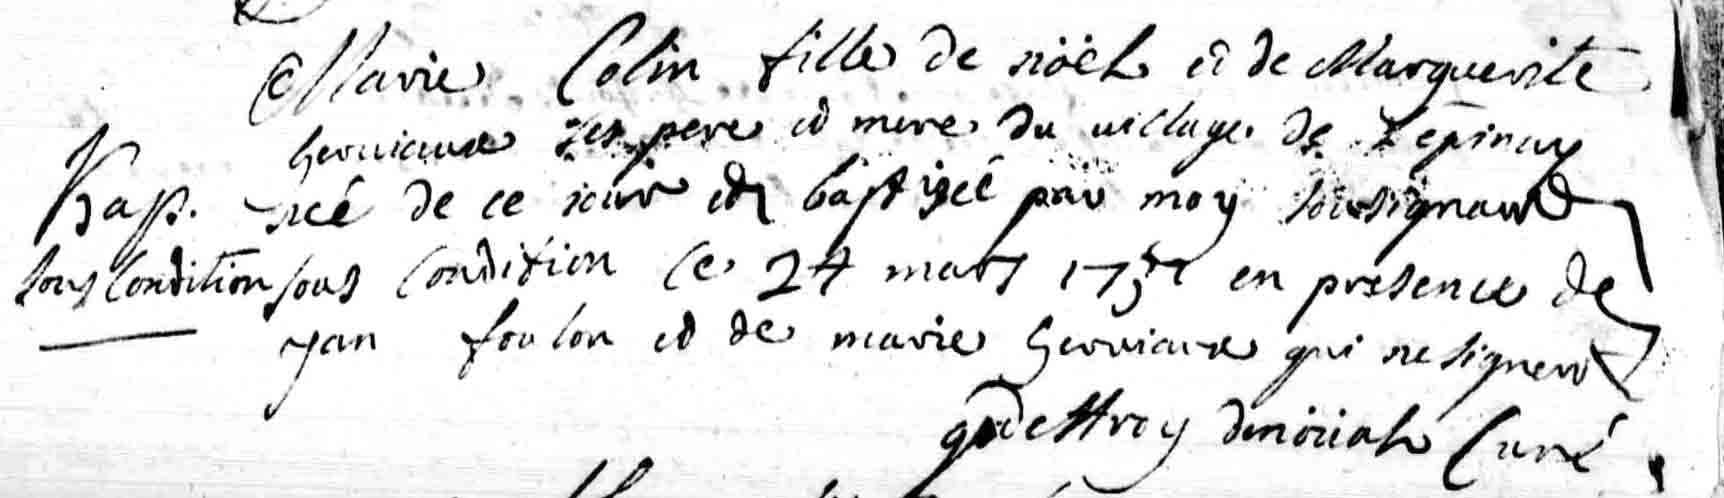 Marie Colin fille de nöel et de Marguerite
herviaux ses pere et mere du village de l'epinay
Bap. née de ce jour et baptizeé par moy soussignant
sous condition sous condition ce 24 mars en presence de
yan foulon et de marie herviaux qui ne signent
godeffroy Curé